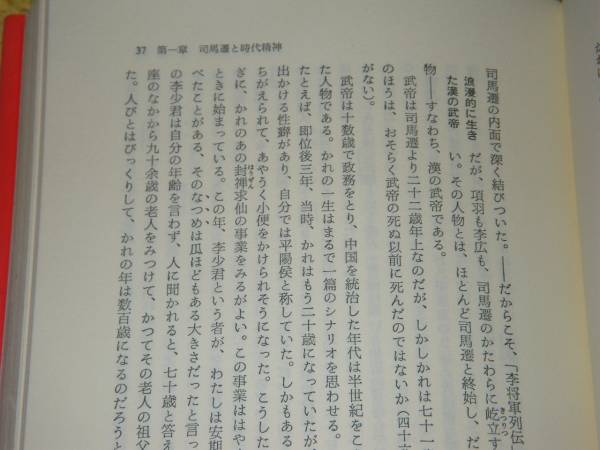 37 第一章 司馬遷と時代精神
司馬遷の内面で深く結びついた。――だからこそ、「李将軍列伝
浪漫的に生き
た漢の武帝
だが、項羽も李広も、司馬遷のかたわらに屹立す
きつりつ
い。その人物とは、ほとんど司馬遷と終始し、だ
物――すなわち、漢の武帝である。
武帝は司馬遷より二十二歳年上なのだが、しかしかれは七十一
のほうは、おそらく武帝の死ぬ以前に死んだのではないか(四十
がない)。
武帝は十数歳で政務をとり、中国を統治した年代は半世紀をこ
た人物である。かれの一生はまるで一篇のシナリオを思わせる。
たとえば、即位後三年、当時、かれはもう二十歳になっていたが、
出かける性癖があり、自分では平陽侯と称していた。しかもある
ちがえられて、あやうく小便をかけられそうになった。こうした
ぎに、かれのあの封禅求仙の事業をみるがよい。この事業ははや
ほうぜん
ときに始まっている。この年、李少君という者が、わたしは安期
べたことがある、そのなつめは瓜ほどもある大きさだったと言っ
の李少君は自分の年齢を言わず、人に聞かれると、七十歳と答え
座のなかから九十余歳の老人をみつけて、かつてその老人の祖父
た。人びとはびっくりして、かれの年は数百歳になるのだろうと